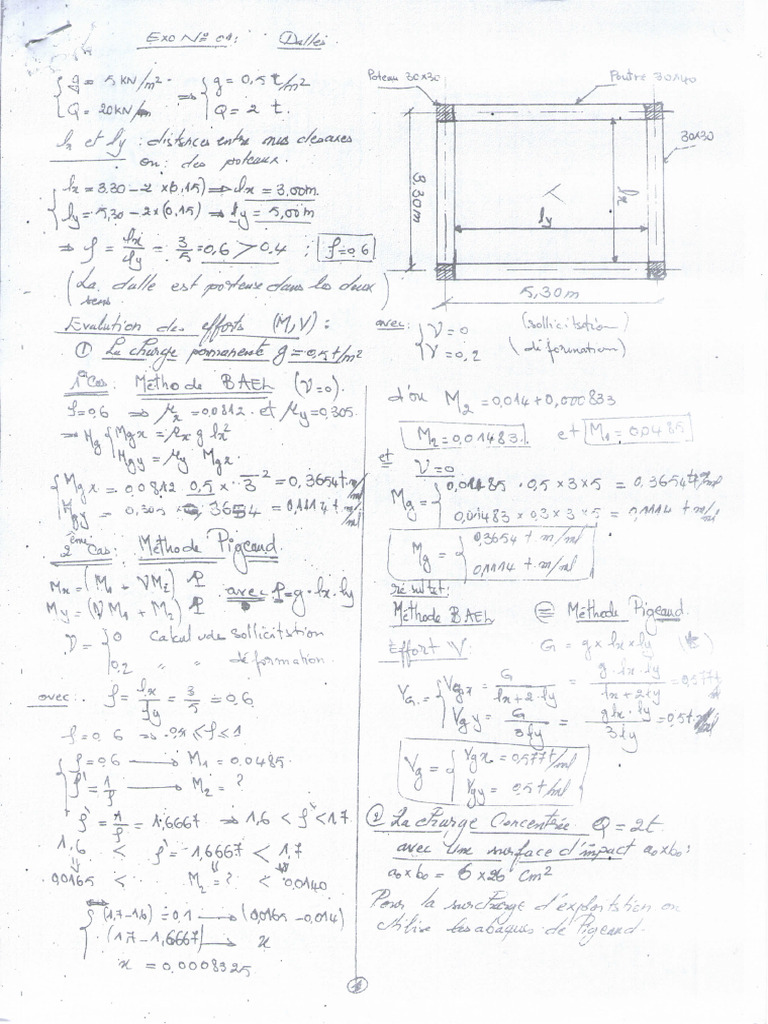 Exo N° 01: Dalles.
g = 5 KN/m². ⇒ g = 0,5 t/m²
Q = 20KN/m Q = 2 t.
lx et ly : distances entre nus des axes
ou: des poteaux.
lx = 3.30 - 2 x(0,15) ⇒ lx = 3.00m.
ly = 5,30 - 2x(0,15) ⇒ ly = 5,00m
⇒ ρ = lx/ly = 3/5 = 0,6 > 0.4 ; ρ = 0,6
(La dalle est porteuse dans les deux
sens
Poteau 30x30
Poutre 30x40
30x30
3.30m
lx
ly
5,30m
Evaluation des efforts (M,V) :
avec: ν = 0 (sollicitation)
ν = 0,2 (déformation)
① La charge permanente g = 0,5 t/m²
1° Cas: Méthode BAEL (ν=0).
ρ=0,6 ⇒ μx = 0,0812 et μy = 0,305.
⇒ Mg Mgx = μx g lx²
Mgy = μy Mgx.
Mgx = 0,0812 0,5 x 3² = 0,3654 t.m/ml
Mgy = 0,305 3654 = 0,1114 t.m/ml
2ème Cas: Méthode Pigeaud.
Mx = (M1 + νM2) P avec P = g . lx . ly
My = (νM1 + M2) P
ν = 0 Calcul des sollicitation
0,2 " " déformation.
avec: ρ = lx/ly = 3/5 = 0.6
ρ = 0,6 ⇒ ≤ ρ ≤ 1
ρ = 0,6 → M1 = 0.0485.
ρ' = 1/ρ → M2 = ?
ρ' = 1/ρ = 1,6667 ⇒ 1,6 < ρ' < 1,7
1,6 < ρ' = 1,6667 < 1,7
0,0165 < M2 = ? < 0,0140
(1,7-1,6) = 0,1 → (0,0165 - 0,014)
(1,7 - 1,6667) → x
x = 0,0008325
d'où M2 = 0,014 + 0,000833
M2 = 0,01483. et M1 = 0,0485
et ν = 0
Mg = 0,0485 . 0,5 x 3 x 5 = 0,3654 t.m/ml
0,01483 x 0,3 x 3 x 5 = 0,1114 t.m/ml
Mg = 0,3654 t m/ml
0,1114 t m/ml
résultat:
Méthode BAEL = Méthode Pigeaud.
Effort V: G = g x lx x ly (t)
VG = Vgx = G/(lx + 2.ly) = g.lx.ly/(lx + 2ly) = 0,577 t
Vgy = G/3ly = glx.ly/3ly = 0,5 t/ml
Vg = Vgx = 0,577 t/ml
Vgy = 0,5 t/ml
② La charge Concentrée Q = 2t.
avec une surface d'impact a0xb0:
a0 x b0 = 6 x 26 cm²
Pour la surcharge d'exploitation on
utilise les abaques de Pigeaud.
1